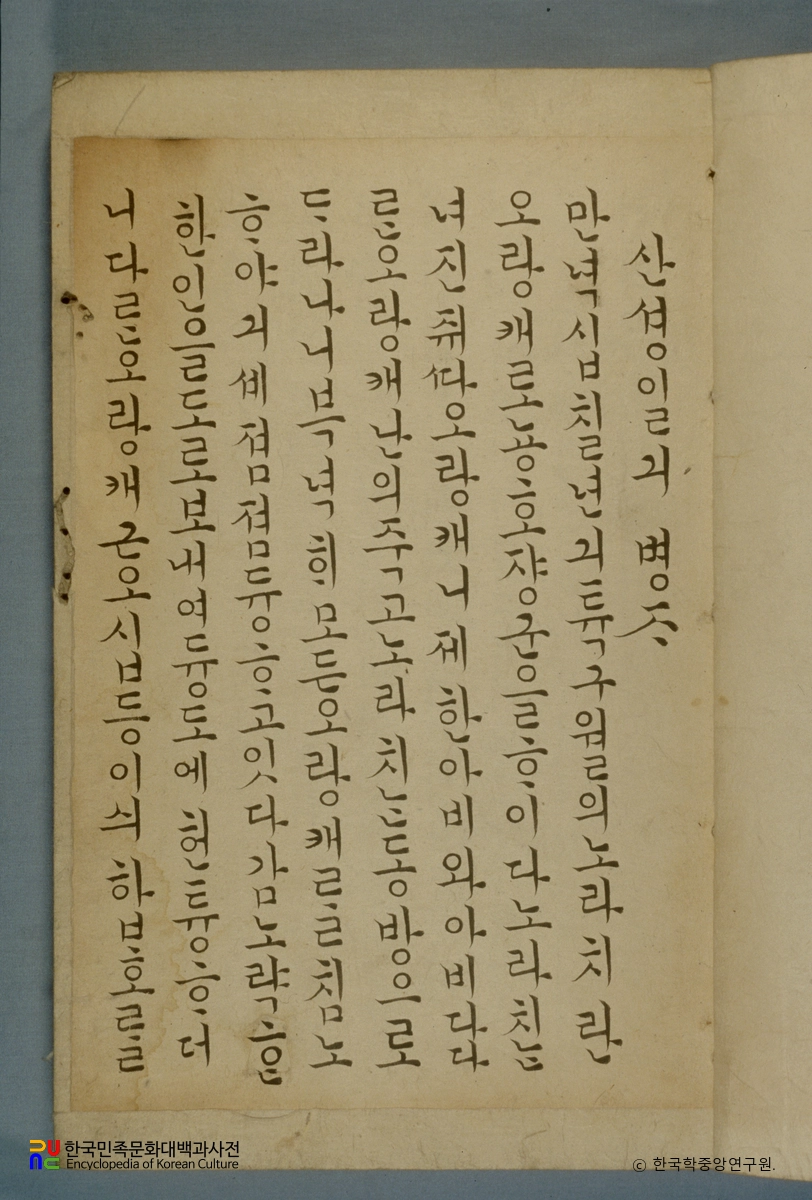 산셩일긔 병ᄌᆞ
만녁십칠년긔튝구월의노라치란
오랑캐로뇽호쟝군을ᄒᆞ이다노라치ᄂᆞᆫ
녀진쥐ᄯᅡ오랑캐니제한아비와아비다다
ᄅᆞᆫ오랑캐난의죽고노라치ᄂᆞᆫ동방으로
ᄃᆞ라나니북녁ᄒᆡ모든오랑캐ᄅᆞᆯ침노
ᄒᆞ야긔셰졈졈듕ᄒᆞ고잇다감노략ᄒᆞᆫ
한인을도로보내여듕도에헌튱ᄒᆞ더
니다ᄅᆞᆫ오랑캐근오십등이싀하보호ᄅᆞᆯ
한국민족문화대백과사전
Encyclopedia of Korean Culture
ⓒ 한국학중앙연구원.